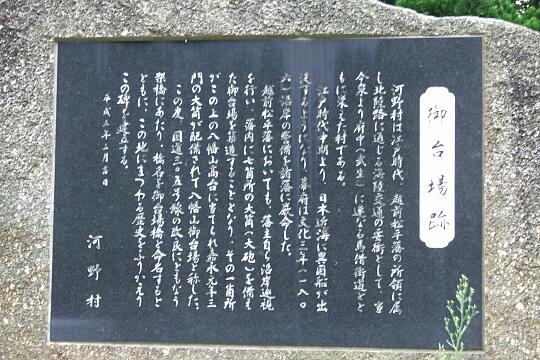 御台場跡
河野村は江戸時代、越前松平藩の所領に属
し北陸路に通じる海陸交通の要衝として、害
今泉より府中(武生)に連なる馬借街道とと
もに栄えた村である。
江戸時代末期より、日本近海に異国船が出
没するようになり、幕府は文化三年(一八〇
六)沿岸の警備を諸藩に厳命した。
越前松平藩においても、藩主自ら沿岸巡視
を行い、藩内に七箇所の大筒(大砲)を備え
た御台場を築造することとなり、その一箇所
がこの上の八幡山高台に当てられ嘉永元年三
門の大筒が配備されて八幡山御台場と称した。
この度、国道三〇五号線の改良にともなう
架橋にあたり、橋名を御台場橋と命名すると
ともに、この地にまつわる歴史をふりかえり
この碑を建立する。
平成三年三月吉日
河野村